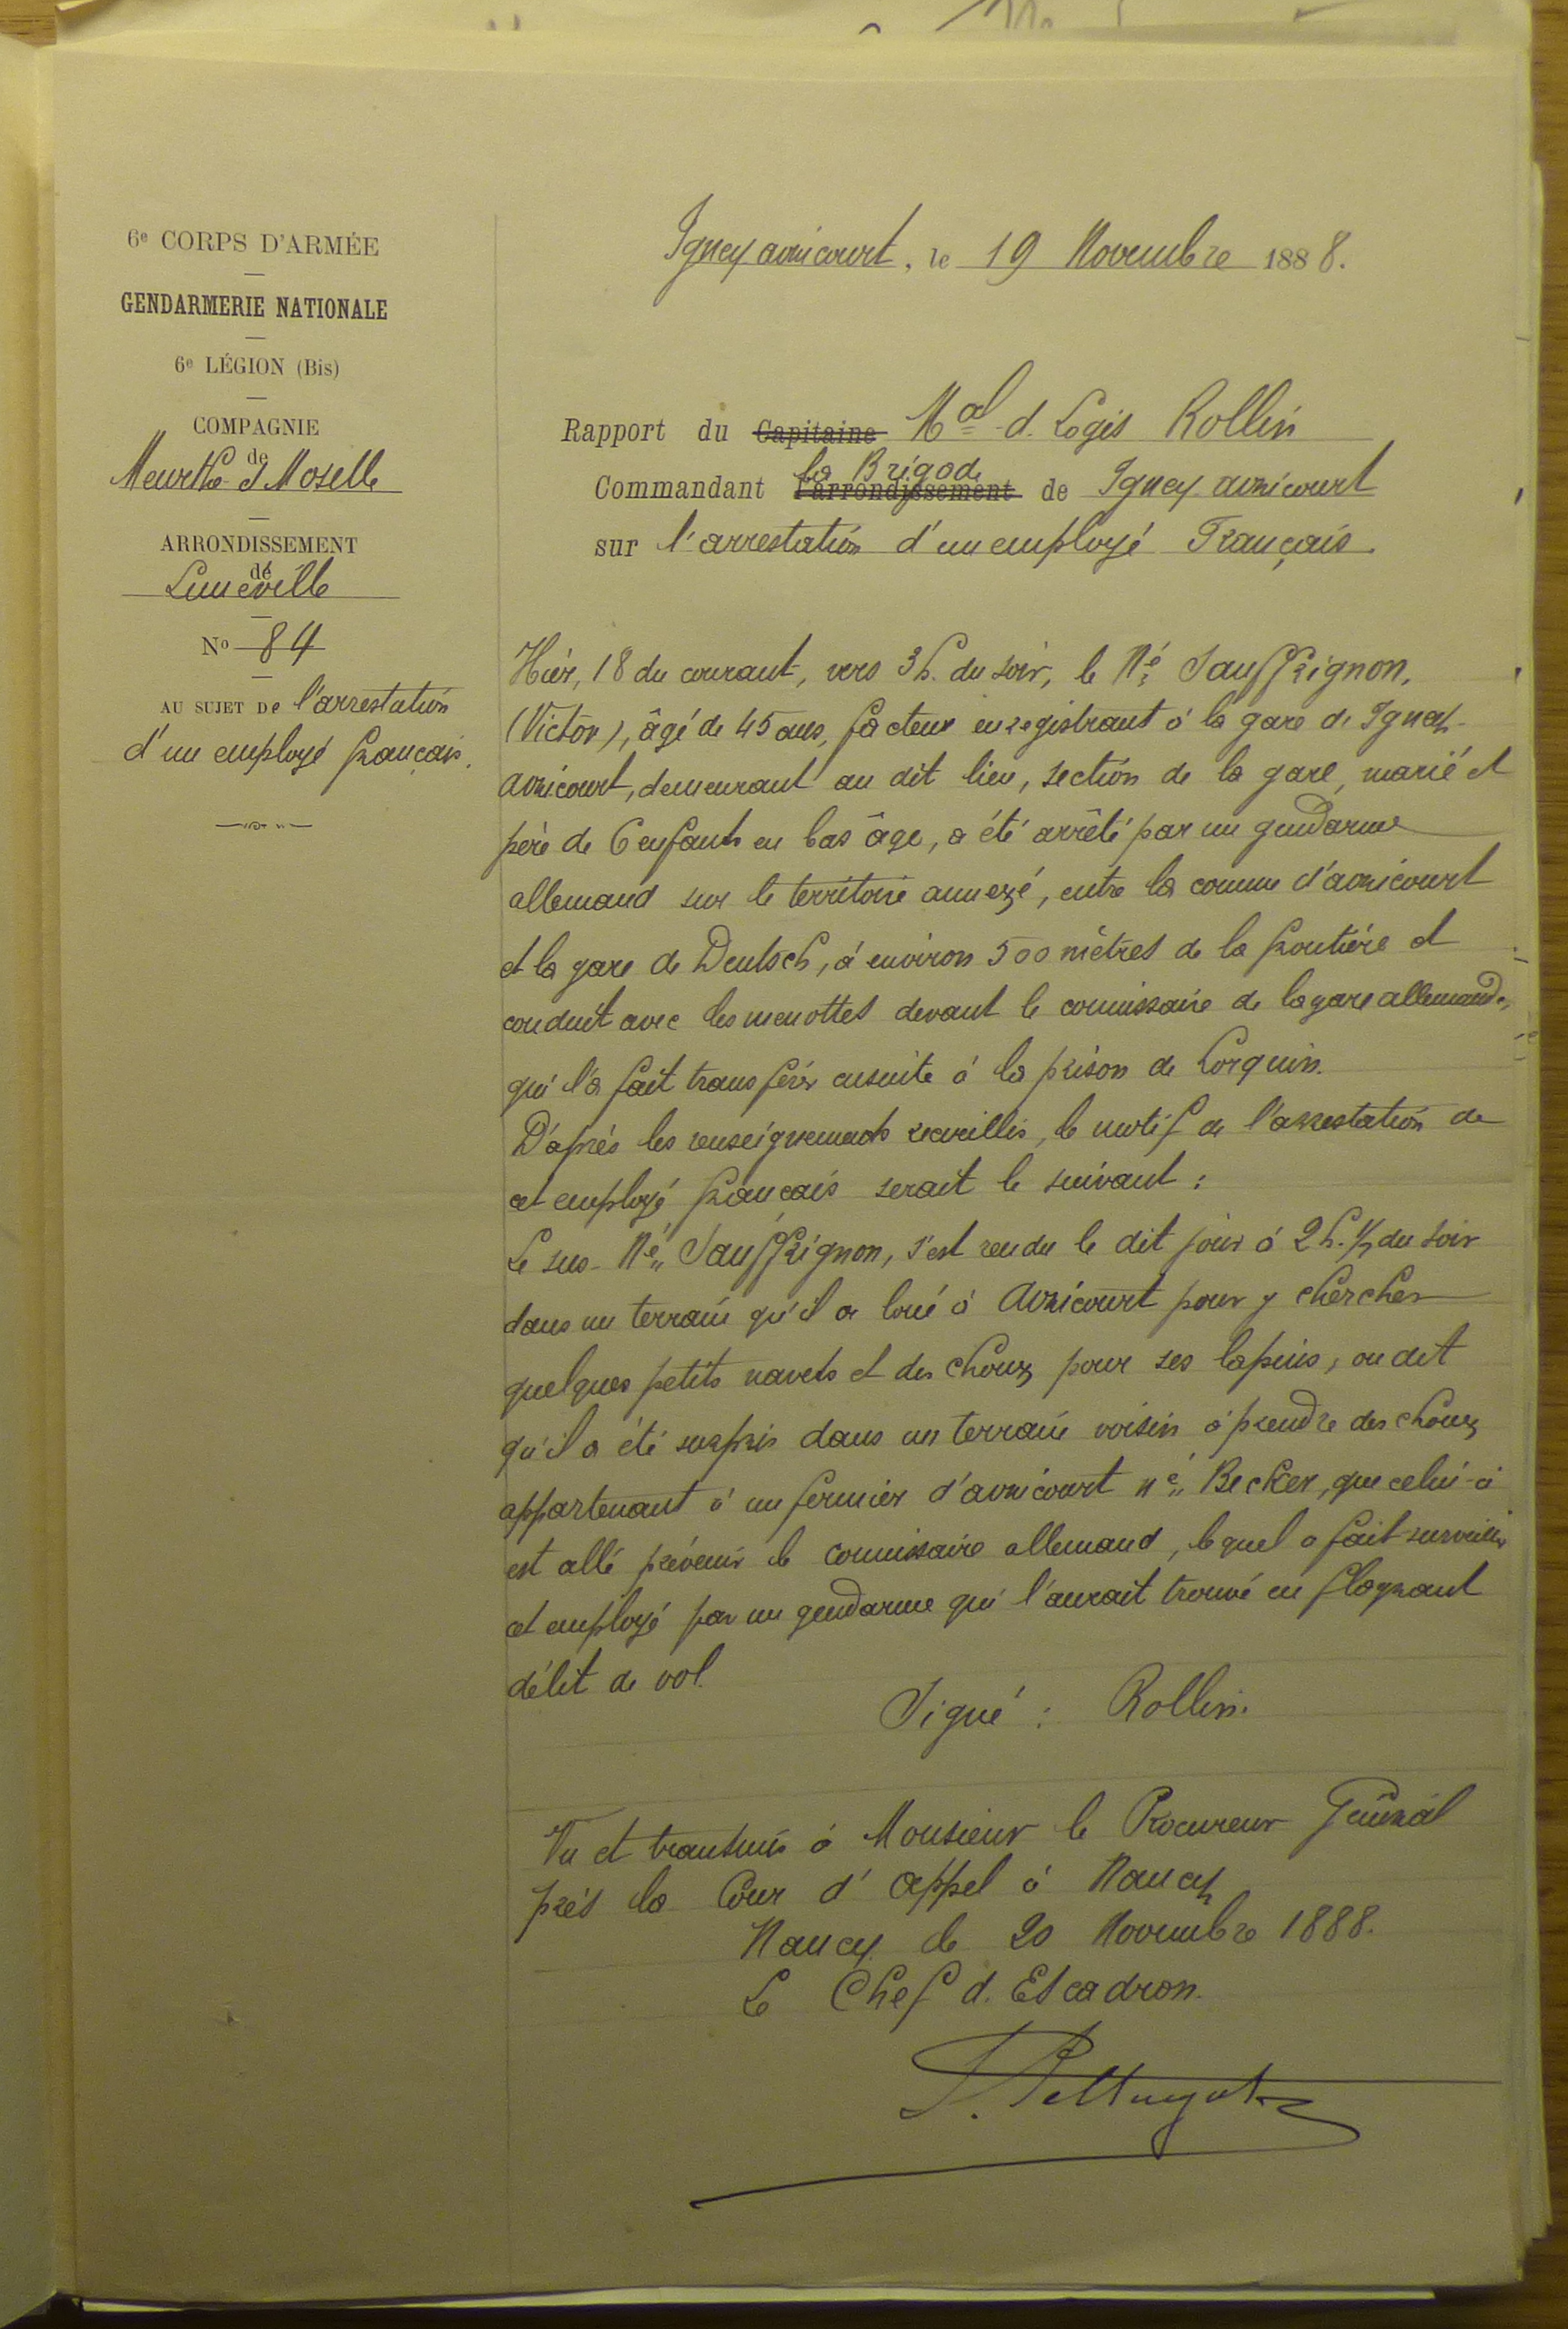 6e CORPS D'ARMÉE
GENDARMERIE NATIONALE
6e LÉGION (Bis)
COMPAGNIE
de
Meurthe & Moselle
ARRONDISSEMENT
de
Lunéville
No 84
AU SUJET De l'arrestation
d'un employé français.
Igney avricourt, le 19 Novembre 1888.
Rapport du Capitaine Mal d. Logis Rollin
la Brigade
Commandant l'arrondissement de Igney avricourt
sur l'arrestation d'un employé Français.
Hier, 18 du courant, vers 3h. du soir, le Né Sauffrignon,
(Victor), âgé de 45 ans, facteur enregistrant à la gare de Igney-
avricourt, demeurant au dit lieu, section de la gare, marié et
père de 6 enfants en bas âge, a été arrêté par un gendarme
allemand sur le territoire annexé, entre la comune d'avricourt
et la gare de Deutsch, à environ 500 mètres de la frontière et
conduit avec les menottes devant le commissaire de la gare allemande,
qui l'a fait transférer ensuite à la prison de Lorquin.
D'après les renseignements recueillis, le motif de l'arrestation de
cet employé français serait le suivant :
Le sus-Né Sauffrignon, s'est rendu le dit jour à 2h.½ du soir
dans un terrain qu'il a loué à Avricourt pour y chercher
quelques petits navets et des choux pour ses lapins, on dit
qu'il a été surpris dans un terrain voisin à prendre des choux
appartenant à un fermier d'avricourt né Becker, que celui-ci
est allé prévenir le commissaire allemand, lequel a fait surveiller
cet employé par un gendarme qui l'aurait trouvé en flagrant
délit de vol.
Signé : Rollin.
Vu et transmis à Monsieur le Procureur Général
près la Cour d'Appel à Nancy
Nancy le 20 Novembre 1888.
Le Chef d. Escadron.